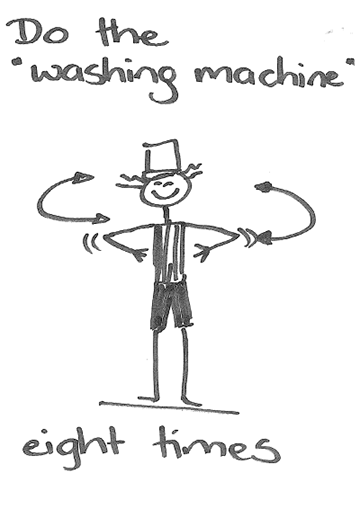 Do the
"washing machine"
eight times